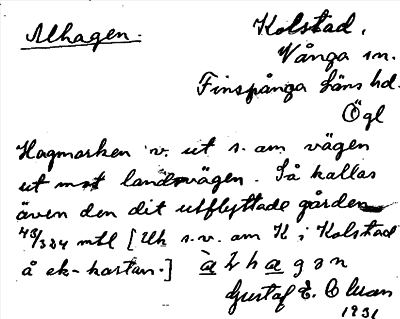 Alhagen.
Kolstad.
Vånga sn.
Finspånga läns hd.
Ögl
Hagmarken v. ut s. om vägen
ut mot landsvägen. Så kallas
även den dit utflyttade gården
43/384 mtl [Uh s.v. om K i Kolstad
å ek-kartan.] à l h a g ə n
Gustaf E. Cluan
1931